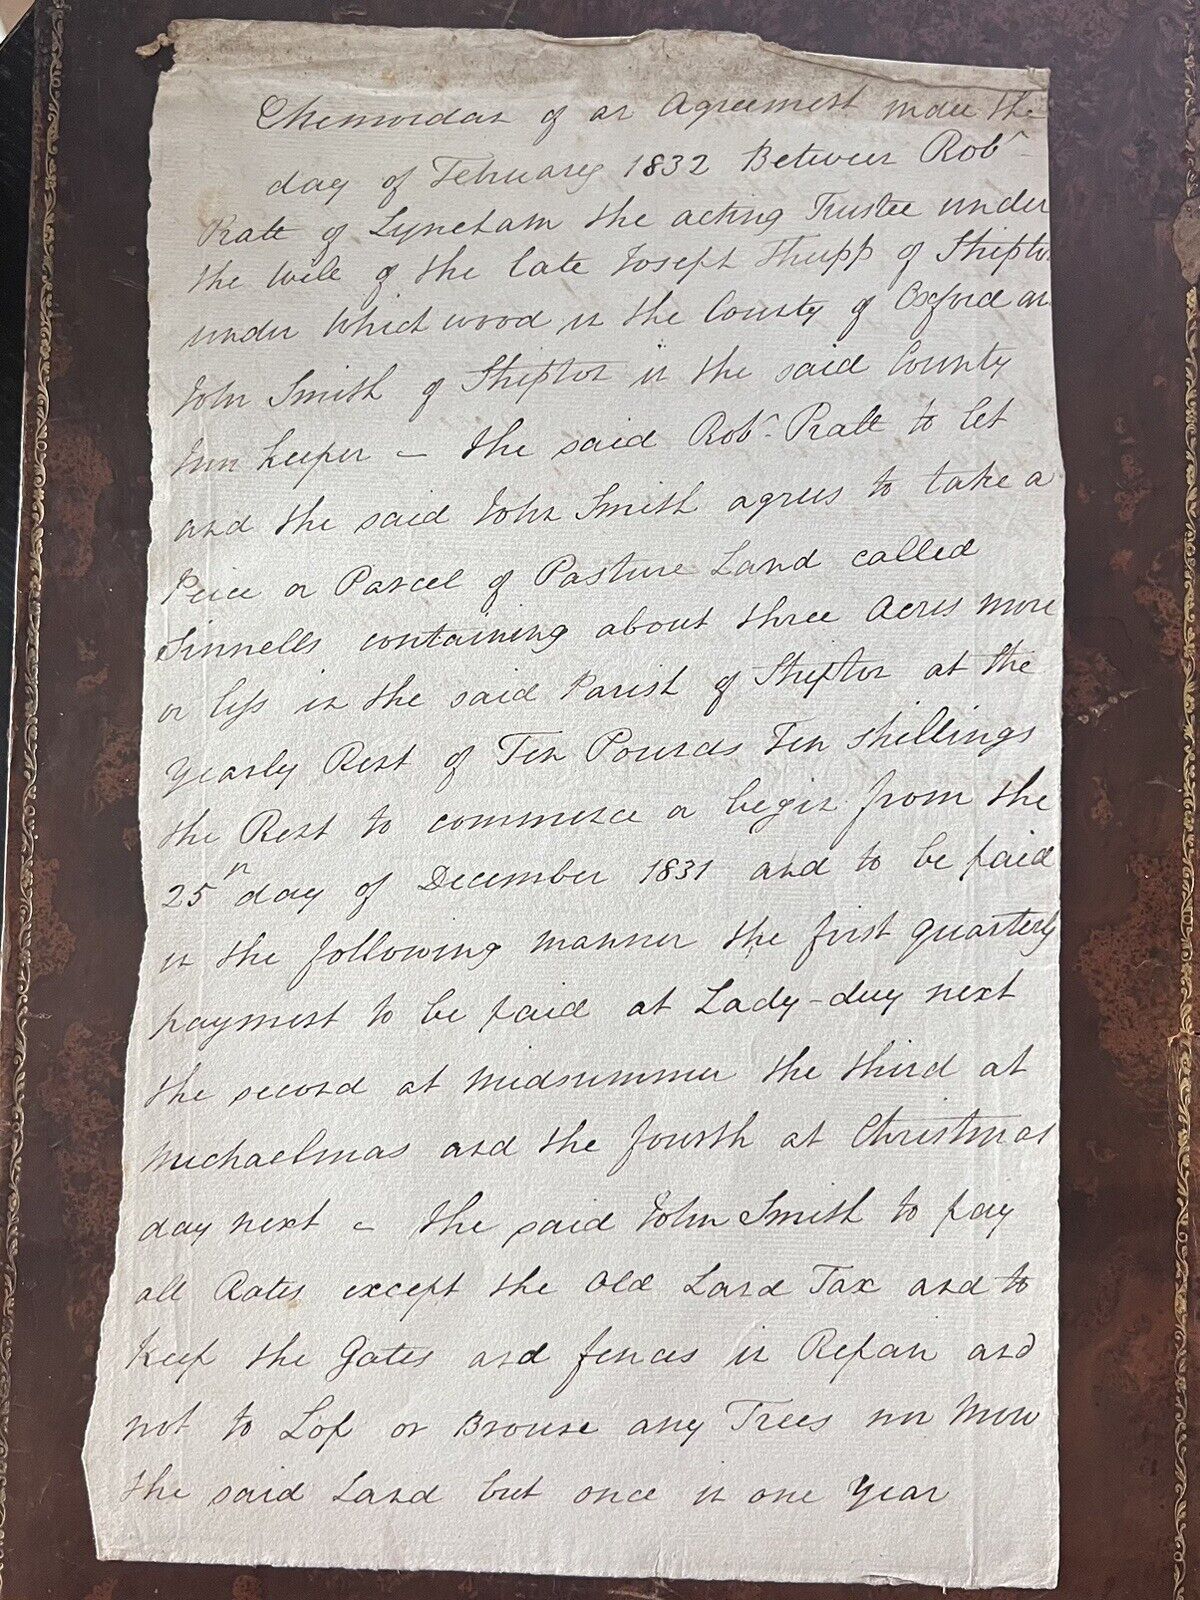 Memordan of an Agreement made the
day of February 1832 Between Robt
Pratt of Lyneham the acting Trustee under
the will of the late Joseph Thupp of Shipton
under Which wood in the County of Oxford an
John Smith of Shipton in the said County
Inn keeper – the said Robt Pratt to let
and the said John Smith agrees to take a
Peice or Parcel of Pasture Land called
Sinnells containing about three Acres more
or less in the said Parish of Shipton at the
yearly Rent of Ten Pounds Ten shillings
the Rent to commence or begin from the
25th day of December 1831 and to be paid
in the following manner the first quarterly
payment to be paid at Lady-day next
the second at Midsummer the third at
Michaelmas and the fourth at Christmas
day next – the said John Smith to pay
all Rates except the Old Land Tax and to
keep the Gates and fences in Repair and
not to Lop or Brouse any Trees nor Mow
the said Land but once in one year